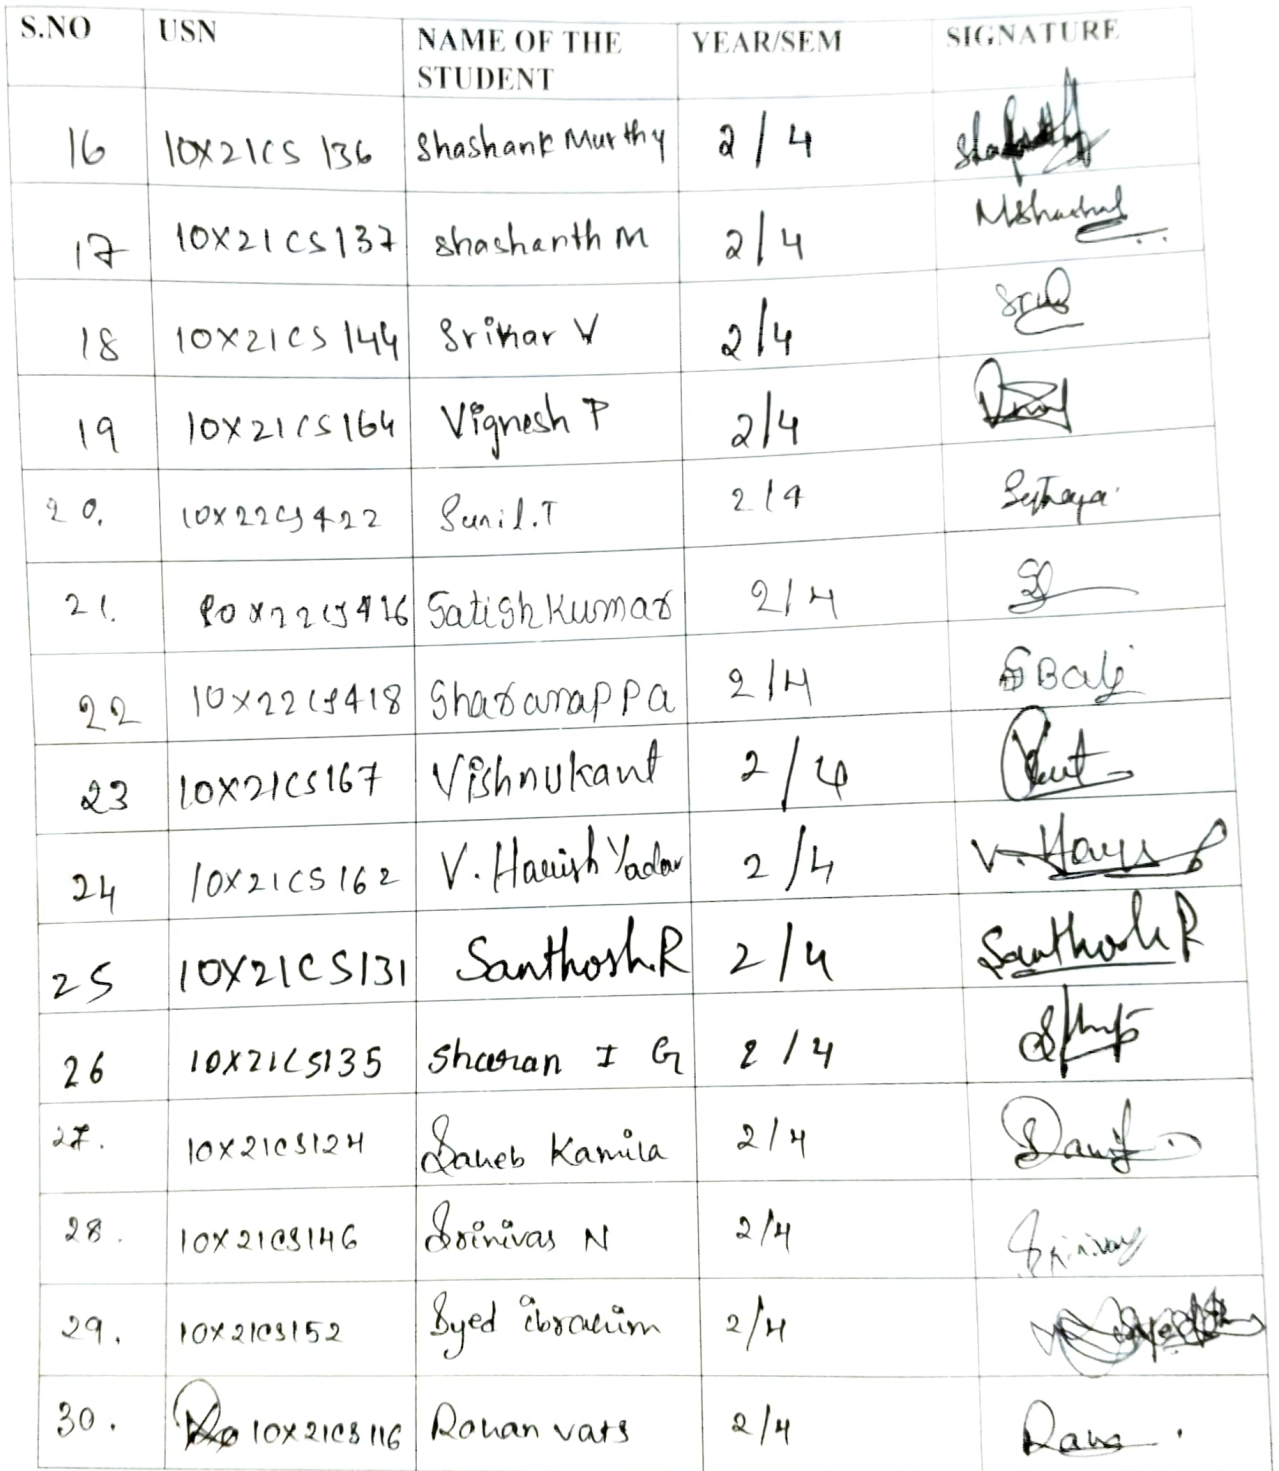 S.NO USN NAME OF THE STUDENT YEAR/SEM SIGNATURE
16 10X21CS 136 Shashank Murthy 2/4
17 10X21CS137 Shashanth M 2/4
18 10X21CS 144 Srikar V 2/4
19 10X21CS164 Vignesh P 2/4
20. 10X22CS422 Sunil.T 2/4
21. 10X22CS416 Satish Kumar 2/4
22 10X22CS418 Sharanappa 2/4
23 10X21CS167 Vishnukant 2/4
24 10X21CS162 V. Harish Yadav 2/4
25 10X21CS131 Santhosh.R 2/4 Santhosh R
26 10X21CS135 Sharan I G 2/4
27. 10X21CS124 Saheb Kamila 2/4
28. 10X21CS146 Srinivas N 2/4 Srinivas
29. 10X21CS152 Syed ibrahim 2/4
30. 10X21CS116 Rohan vats 2/4